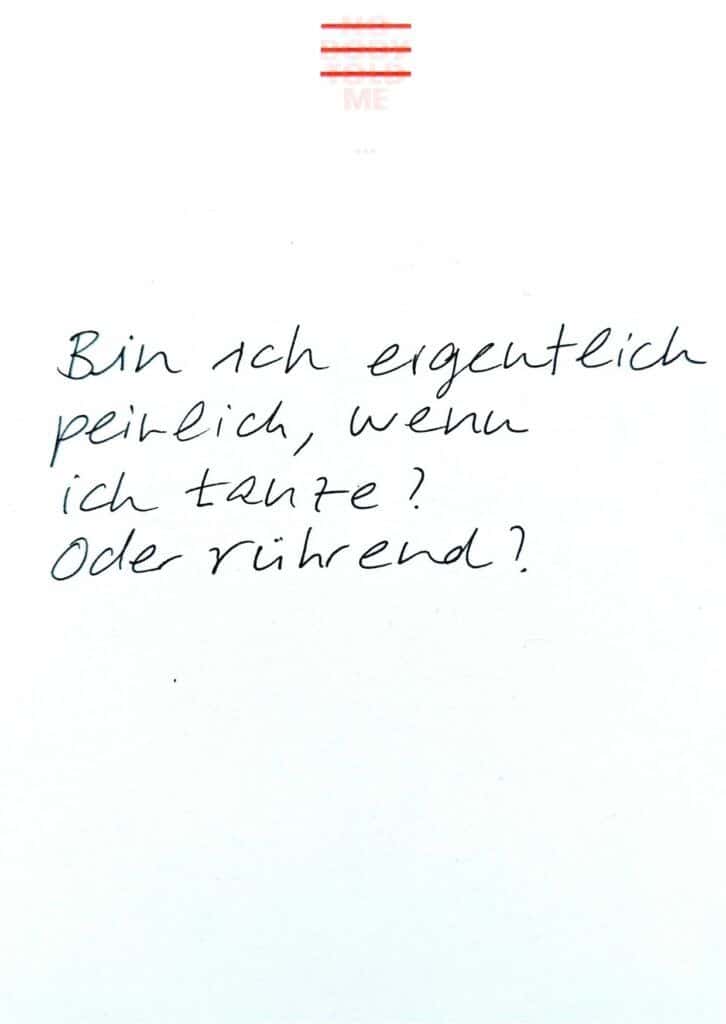 NO
BODY
TOLD
ME
...
Bin ich eigentlich
peinlich, wenn
ich tanze?
Oder rührend?